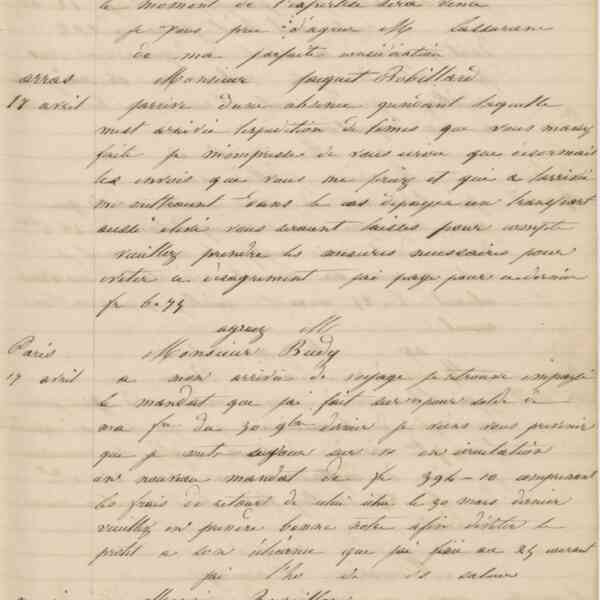 le moment de l'expertise sera venu
je vous prie d'agréer M l'assurance
de ma parfaite considération
arras Monsieur Jacquet Robillard
17 avril j'arrive d'une absence pendant laquelle
m'est arrivée l'expédition de que vous mavez
faite je m'empresse de vous écrire que désormais
les envois que vous me ferez et qui a l'arrivée
me mettraient dans le cas de payer un transport
aussi élevé vous seraient laissés pour compte
veuillez prendre les mesures nécessaires pour
éviter ce désagrément j'ai payé pour ce dernier
fr 6.75
agréez M
Paris Monsieur Rudy
17 avril a mon arrivée de voyage je trouve impayé
le mandat que j'ai fait sur pour solde de
ma fre du 30 9bre dernier je viens vous prévenir
que je mets sur vs en circulation
un nouveau mandat de fr 394-10 comprenant
les frais de retour de celui échu le 30 mars dernier
veuillez en prendre bonne note afin d'éviter le
protêt a son échéance que j'ai fixée au 25 courant
j'ai l'ho de vs saluer